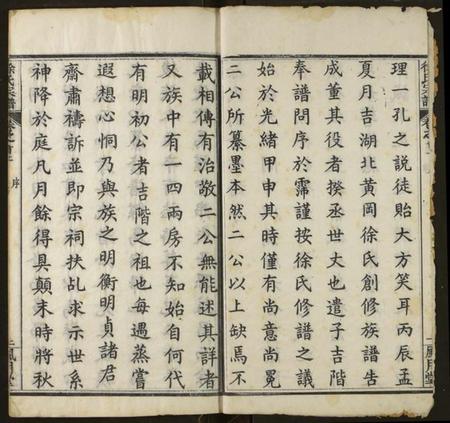 理一孔之說徒貽大方笑耳丙辰孟
夏月吉湖北黃岡徐氏創修族譜告
成董其役者揆丞世丈也遣子吉階
奉譜問序於霈謹按徐氏修譜之議
始於光緒甲申其時僅有尚意尚冕
二公所纂墨本然二公以上缺焉不
載相傳有治敬二公無能述其詳者
又族中有一四兩房不知始自何代
有明初公者吉階之祖也每遇蒸嘗
遐想心恫乃與族之明衡明貞諸君
齋肅禱訴並即宗祠扶乩求示世系
神降於庭凡月餘得具顛末時將秋
徐氏宗譜
序